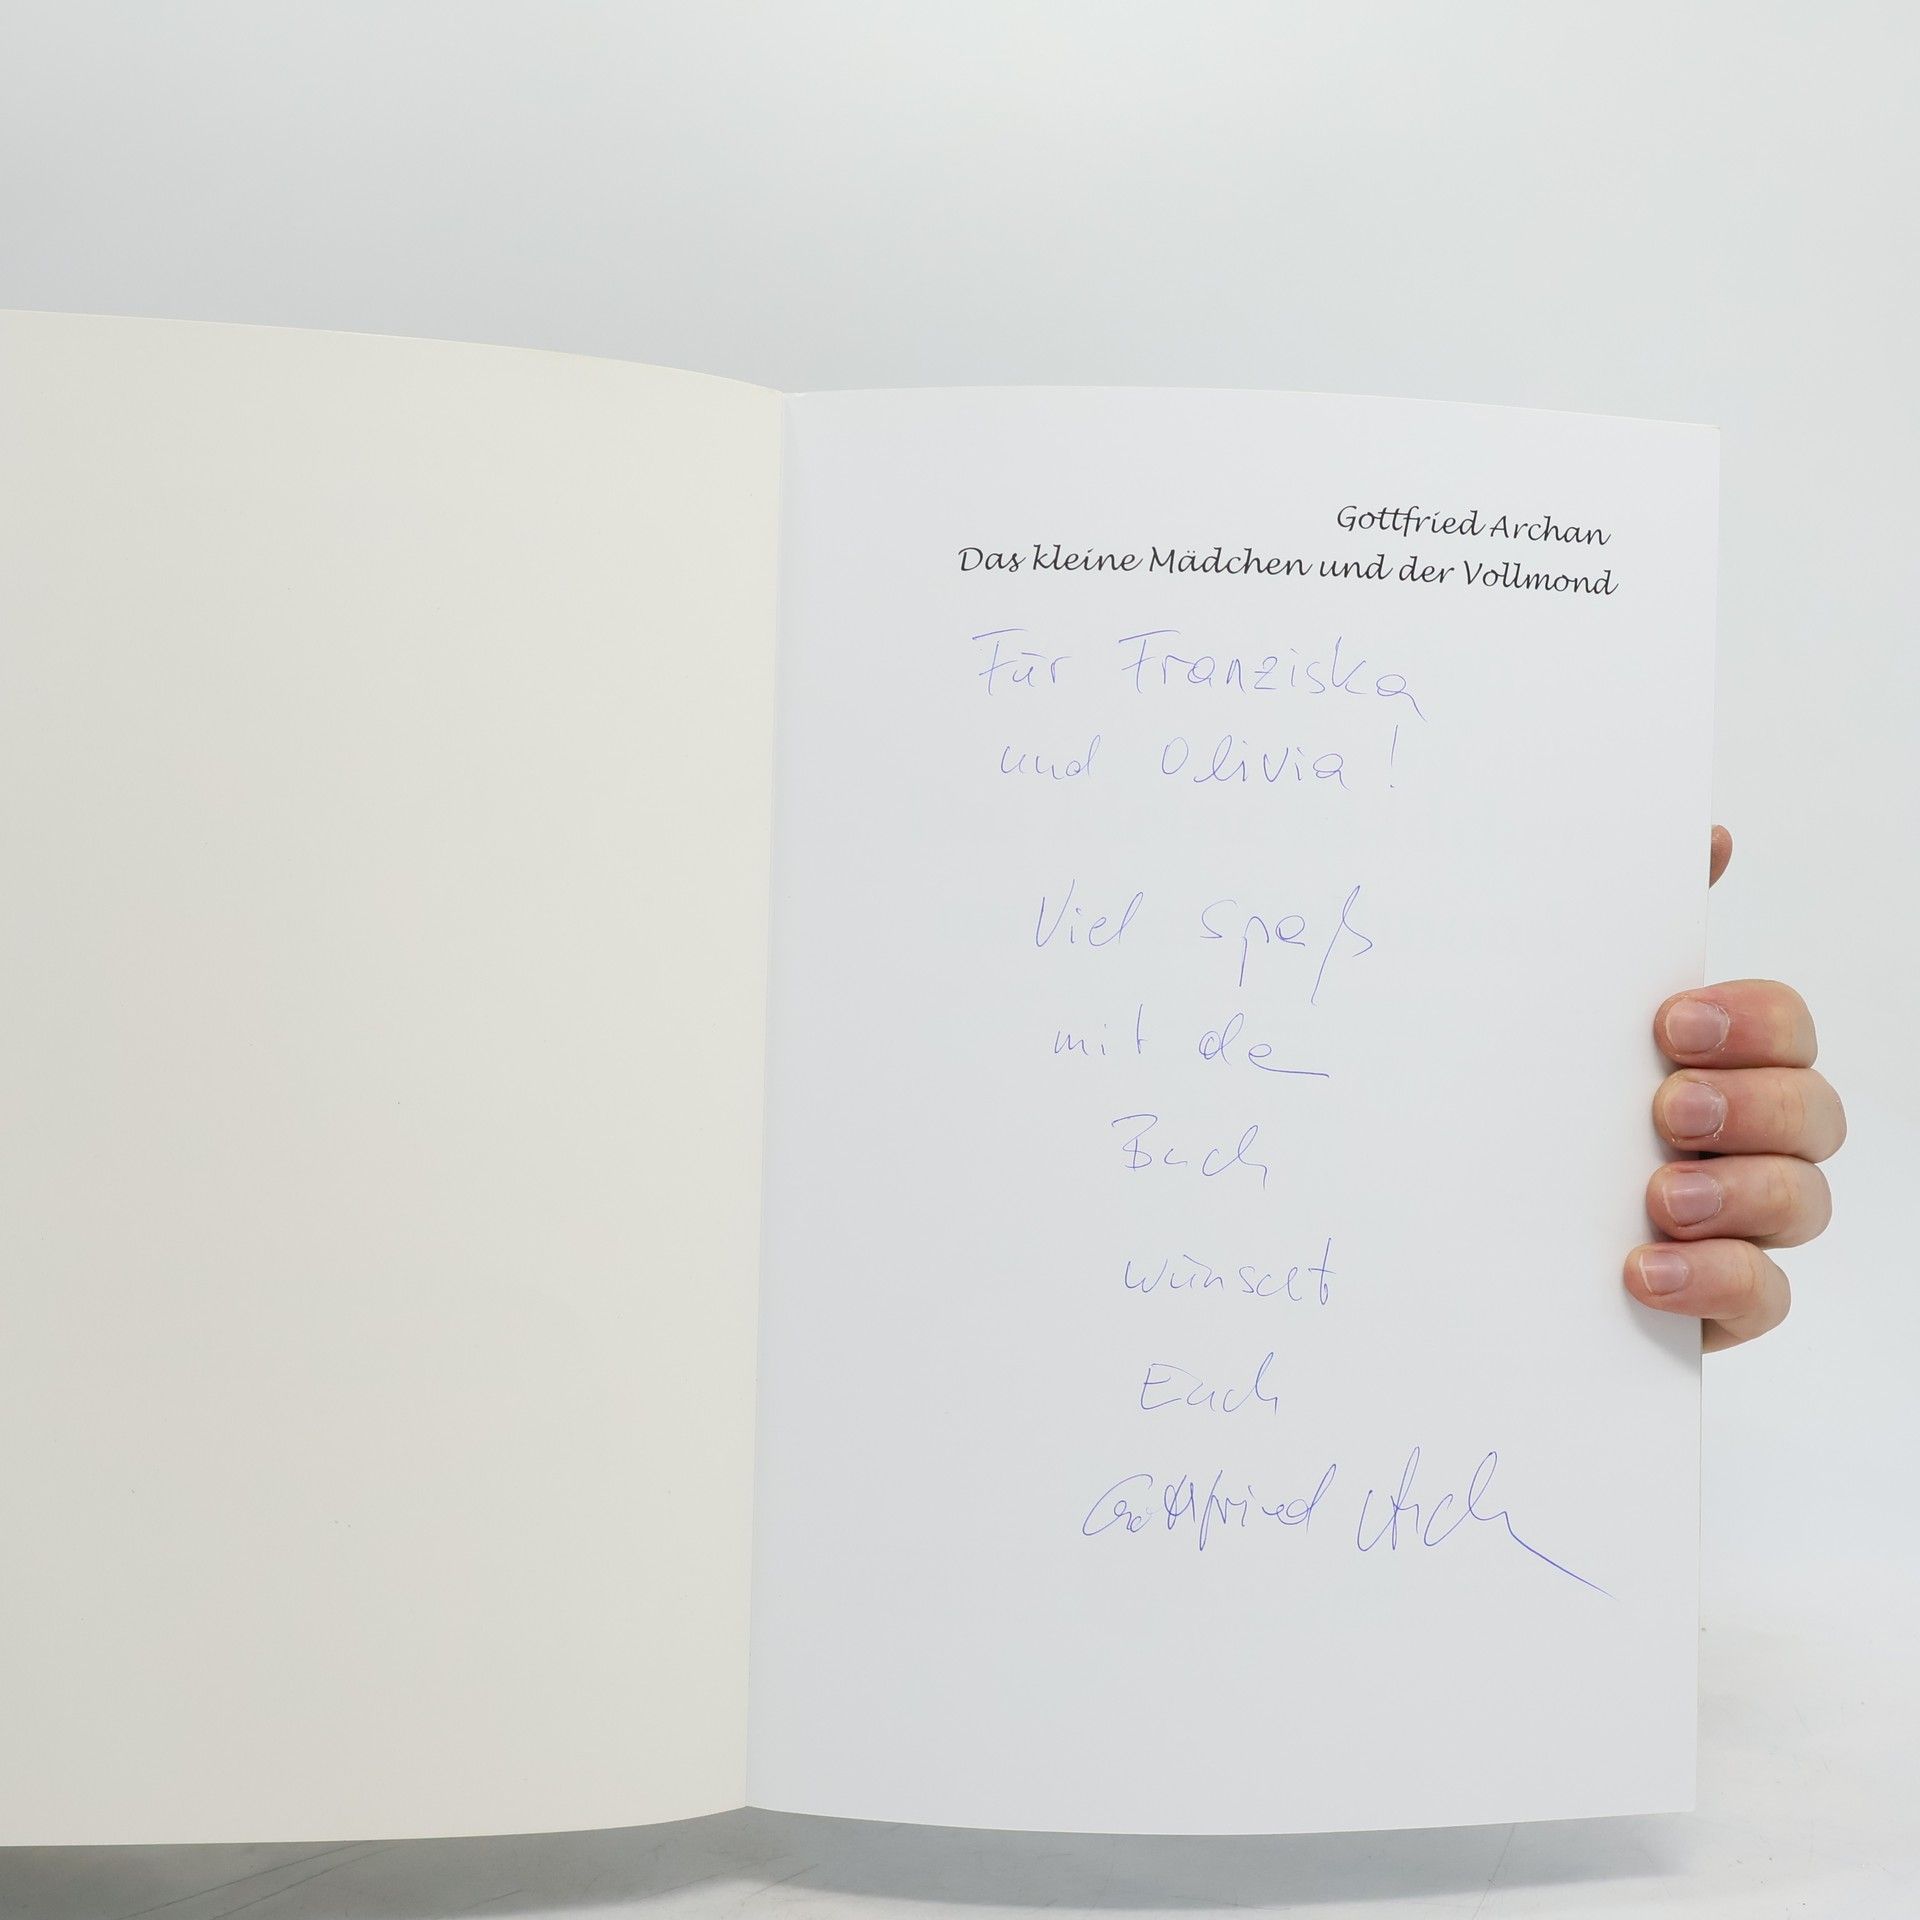 Gottfried Archan
Das kleine Mädchen und der Vollmond
Für Franziska
und Olivia!
Viel Spaß
mit de
Buch
wünscht
Euch
Gottfried Arch